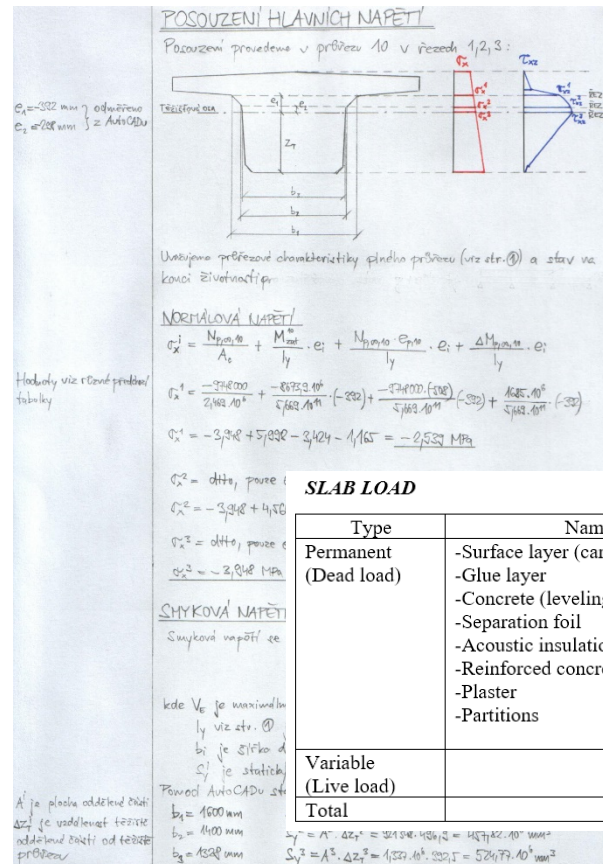 POSOUZENÍ HLAVNÍCH NAPĚTÍ
Posouzení provedeme v průřezu 10 v řezech 1,2,3:
e₁=-392 mm } odměřeno
e₂=-298 mm } z AutoCADu
σₓ
τₓz
σₓ¹
σₓ²
σₓ³
e₁
e₂
TĚŽIŠŤOVÁ OSA
z_T
b₁
b₂
b₃
Uvažujeme průřezové charakteristiky plného průřezu (viz str. ①) a stav na
konci životnosti
NORMÁLOVÁ NAPĚTÍ
σₓⁱ = N_p,∞,10 / A_c + M¹⁰ / I_y · eᵢ + N_p,∞,10 · e_p,10 / I_y · eᵢ + ΔM_p,∞,10 / I_y · eᵢ
Hodnoty viz různé předchozí
tabulky
σₓ¹ = -9748000 / 2,469.10⁶ + -8673,9.10⁶ / 5,669.10¹¹ · (-392) + -9748000.(-508) / 5,669.10¹¹ (-392) + 1685.10⁶ / 5,669.10¹¹ · (-392)
σₓ¹ = -3,948 + 5,998 - 3,424 - 1,165 = -2,539 MPa
σₓ² = dtto, pouze
σₓ² = -3,948 + 4,56
σₓ³ = dtto, pouze
σₓ³ = -3,948 MPa
SMYKOVÁ NAPĚTÍ
Smyková napětí se
kde V_E je maximáln
I_y viz str. ①
bᵢ je šířka
S_yⁱ je statick
A' je plocha oddělené části
Δz_T je vzdálenost těžiště
oddělené části od těžiště
průřezu
Pomocí AutoCADu
b₁ = 1600 mm
b₂ = 1400 mm
b₃ = 1328 mm
S_y³ = A³ · Δz_T³ = 1,337.10⁶ · 392,5 = 524,77.10⁶ mm³
SLAB LOAD
Type
Nam
Permanent
(Dead load)
-Surface layer (car
-Glue layer
-Concrete (leveling
-Separation foil
-Acoustic insulatio
-Reinforced concre
-Plaster
-Partitions
Variable
(Live load)
Total